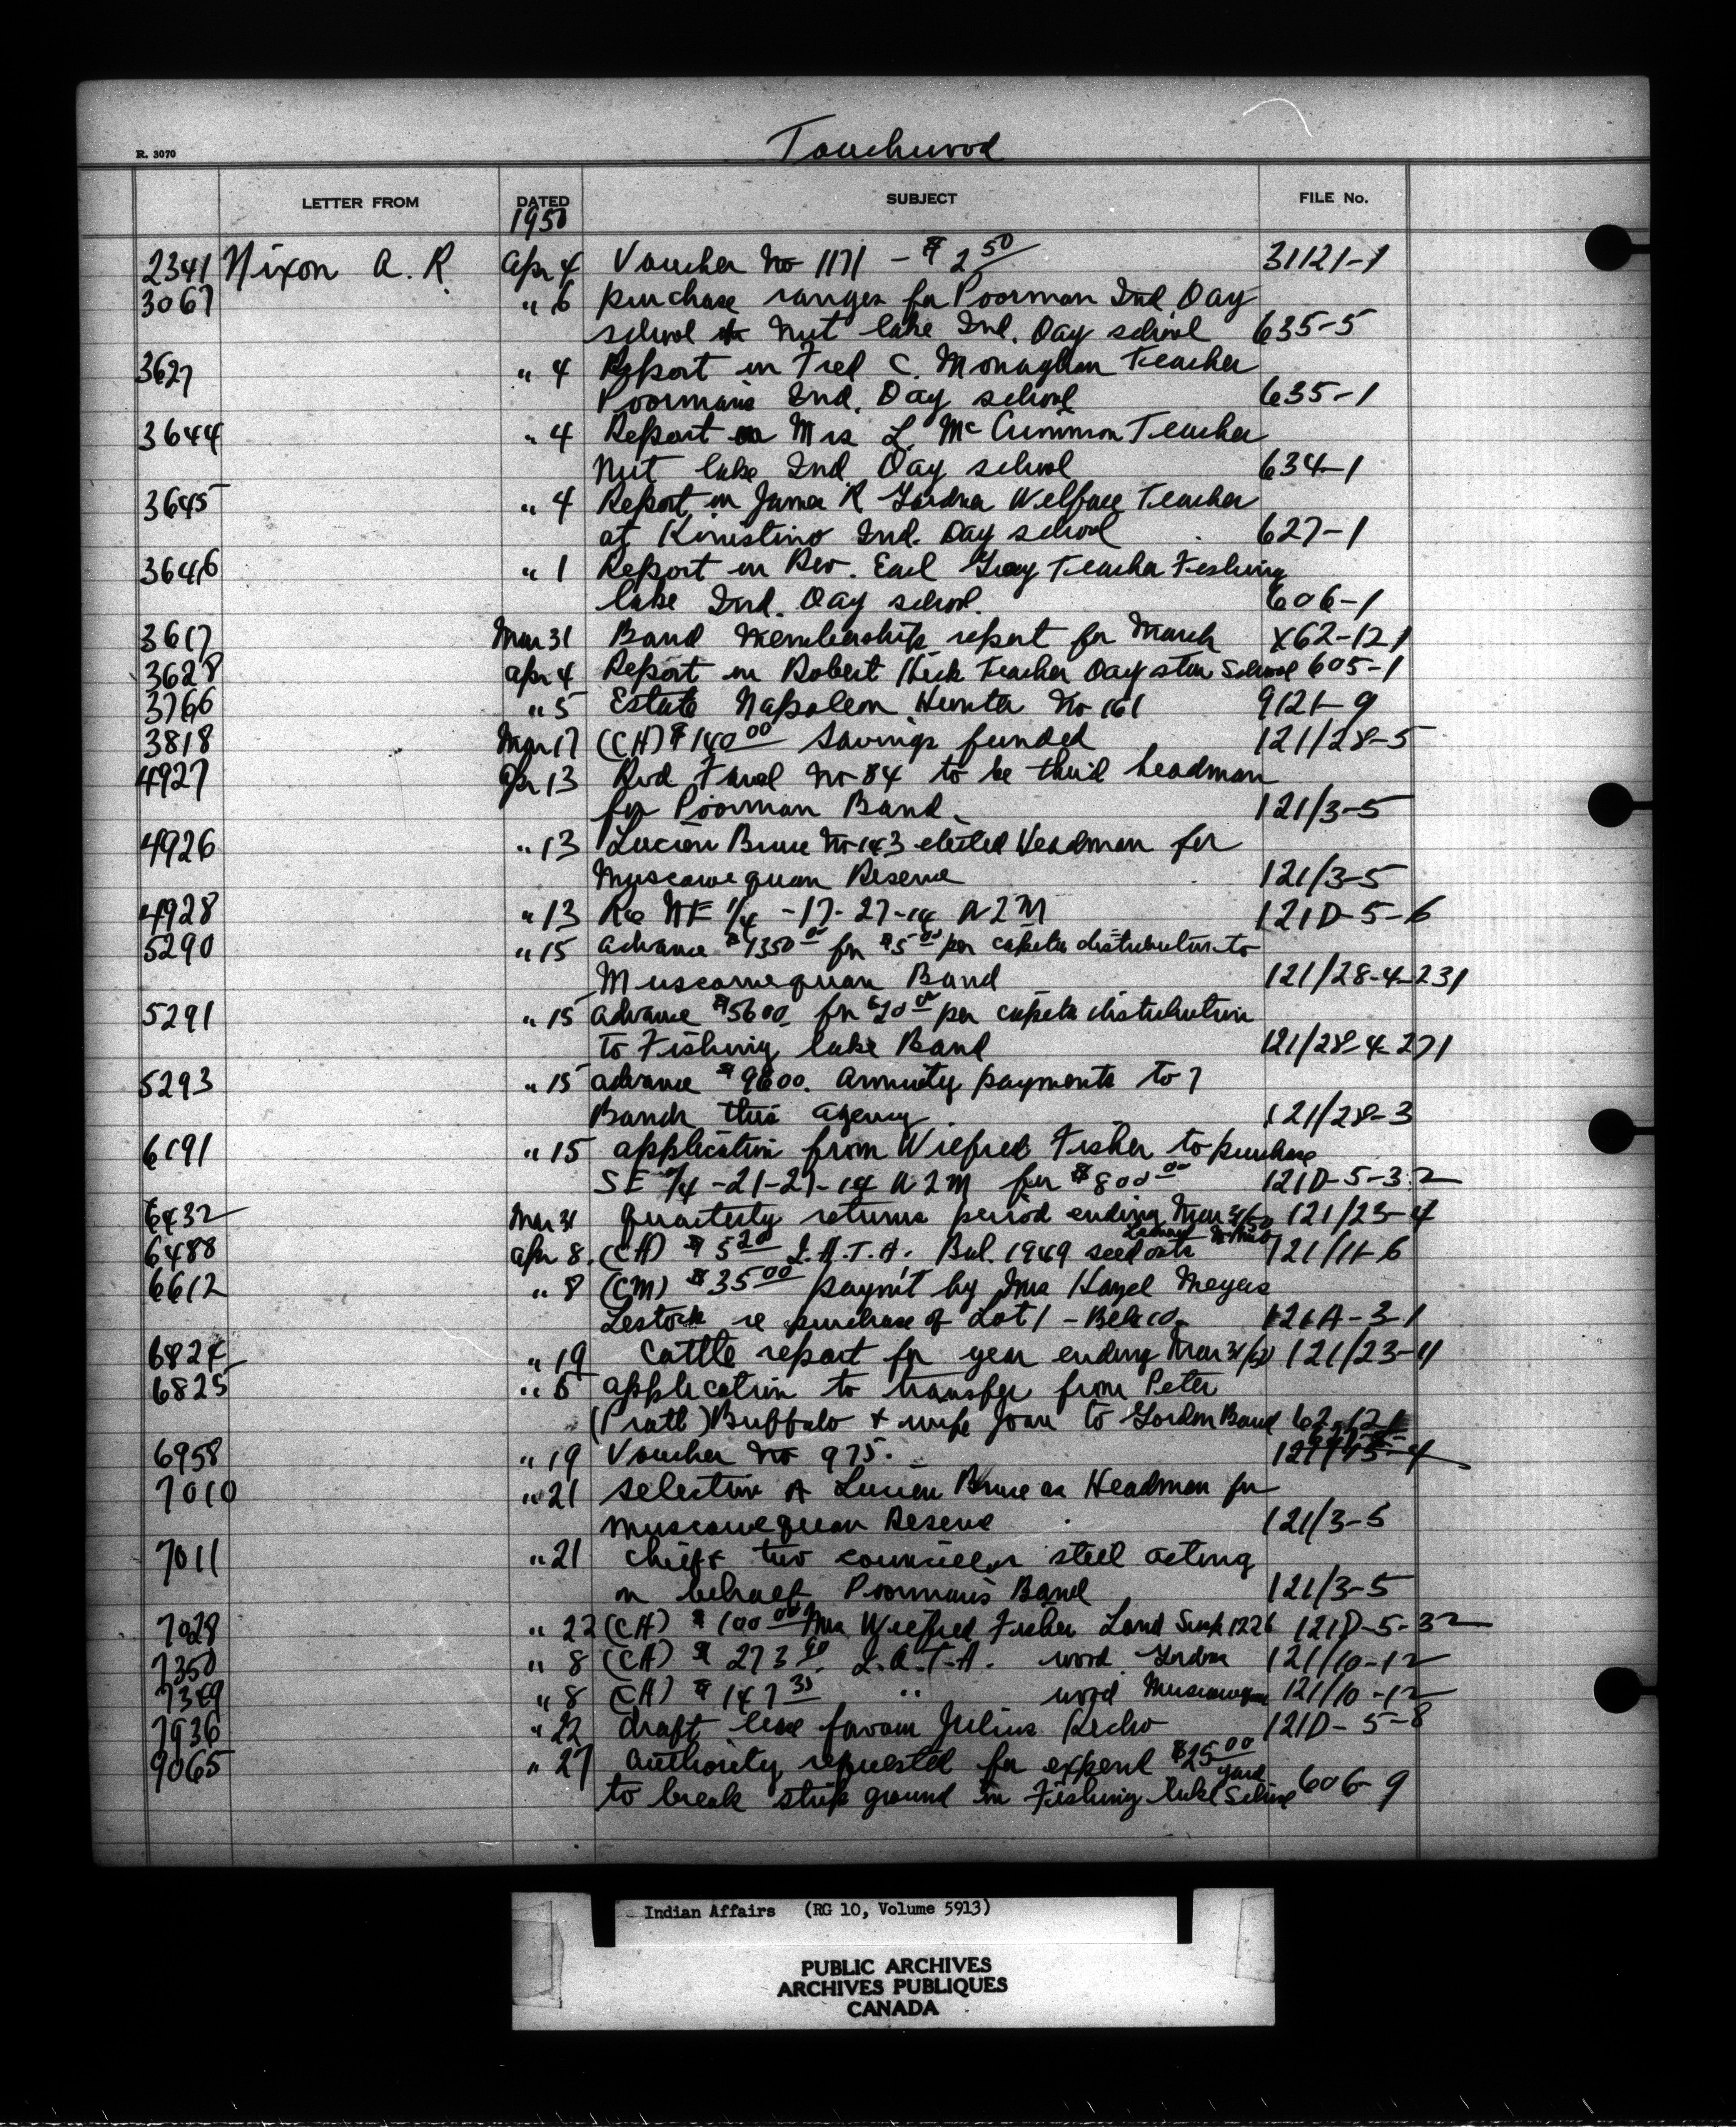 Touchwood
R. 3070
LETTER FROM DATED SUBJECT FILE No.
1950
2341 Nixon A. R. Apr 4 Voucher No 1171 - $2 50 31121-1
3067 " 6 purchase ranges for Poorman Ind Day
school & Nut lake Ind. Day school 635-5
3627 " 4 Report on Fred C. Monaghan Teacher
Poorman's Ind. Day school 635-1
3644 " 4 Report on Mrs L. McCrimmon Teacher
Nut lake Ind. Day school 634-1
3645 " 4 Report on James R Gordon Welfare Teacher
at Kinistino Ind. Day school 627-1
3646 " 1 Report on Rev. Earl Gray Teacher Fishing
lake Ind. Day school. 606-1
3617 Mar 31 Band Membership report for March X62-121
3628 Apr 4 Report on Robert Teacher Day star School 605-1
3766 " 5 Estate Napoleon Hunter No 161 9121-9
3818 Mar 17 (CH) $140 00 Savings funded 121/28-5
4927 Apr 13 Favel No 84 to be third headman
for Poorman Band. 121/3-5
4926 " 13 Lucien Bruce No 143 elected Headman for
Muscowequan Reserve 121/3-5
4928 " 13 Re NE 1/4 -17-27-14 W2M 121D-5-6
5290 " 15 advance $1350 00 for $5 00 per capita distribution to
Muscowequan Band 121/28-4-231
5291 " 15 advance $5600 for $20 00 per capita distribution
to Fishing lake Band 121/28-4-271
5293 " 15 advance $9600. Annuity payments to 7
Bands this agency 121/28-3
6191 " 15 application from Wilfred Fisher to purchase
SE 1/4 -21-27-14 W2M for $800 00 121D-5-32
6432 Mar 31 quarterly returns period ending Mar 31/50 121/23-4
6488 Apr 8. (CH) $5 20 I.A.T.A. Bal. 1949 seed oats 121/11-6
6612 " 8 (CM) $35 00 paym't by Mrs Hazel Meyers
Lestock re purchase of Lot 1 - 121A-3-1
6824 " 19 Cattle report for year ending Mar 31/50 121/23-11
6825 " 5 application to transfer from Peter
(Pratt) Buffalo & wife Joan to Gordon Band 62-121
6958 " 19 Voucher No 975.
7010 " 21 selection of Lucien Bruce as Headman for
Muscowequan Reserve 121/3-5
7011 " 21 Chief & two councillors still acting
on behalf Poorman's Band 121/3-5
7028 " 22 (CH) $100 00 Mrs Wilfred Fisher Land Sale 1226 121D-5-32
7350 " 8 (CH) $273 90. I.A.T.A. wood Gordon 121/10-12
7349 " 8 (CH) $147 35 " wood Muscowequan 121/10-12
7936 " 22 draft lease favour Julius 121D-5-8
9065 " 27 authority requested for expend $25 00
to break strip ground in Fishing lake School yard 606-9
Indian Affairs (RG 10, Volume 5913)
PUBLIC ARCHIVES
ARCHIVES PUBLIQUES
CANADA